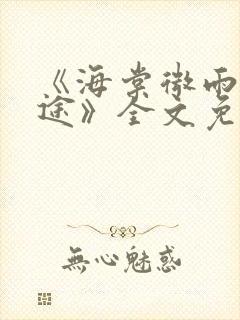 《海棠微雨
途》全文免
無心魅惑